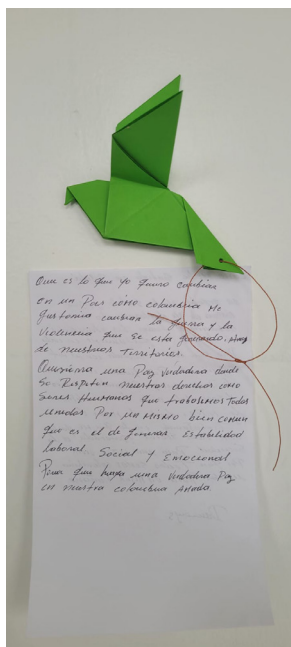 Que es lo que yo quiero cambiar
en un Pais como colombia Me
gustaria cambiar la guerra y la
Violencia que se esta generando
de nuestros Territorios.
Quisiera una Paz verdadera donde
Se Respeten nuestros derechos como
Seres Humanos que trabajemos Todos
unidos Por un mismo bien comun
que es el de generar Estabilidad
Laboral Social y Emocional
Para que haya una Verdadera Paz
en nuestra colombia Amada